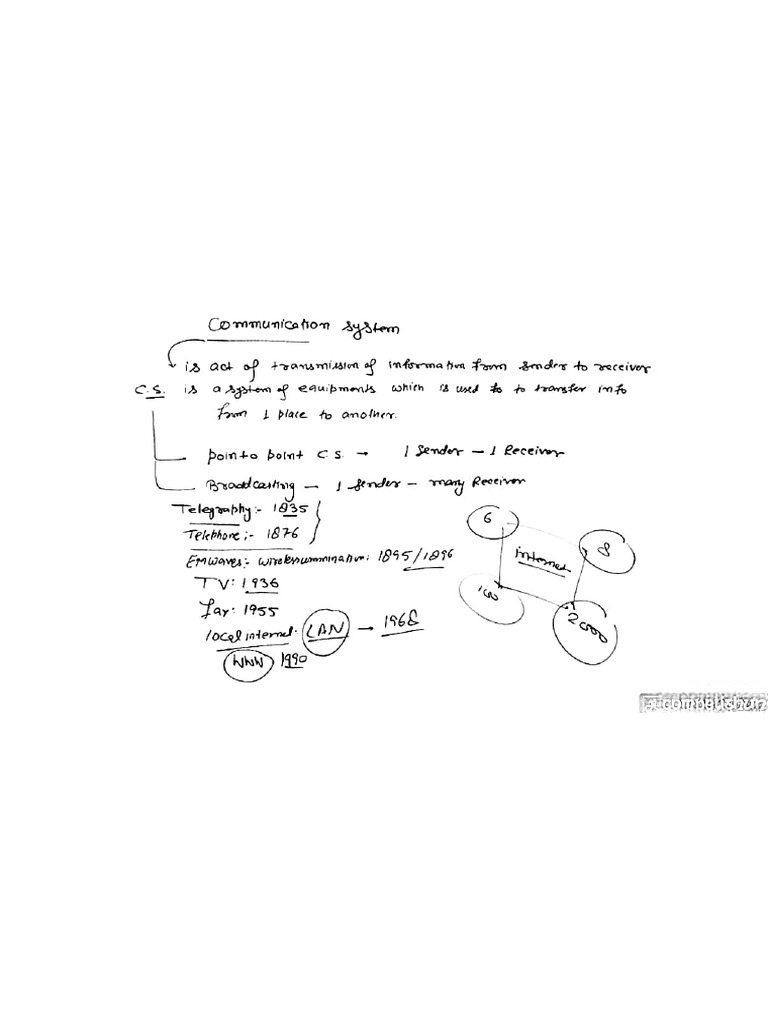 Communication system
is act of transmission of information from sender to receiver
C.S. is a system of equipments which is used to to transfer info
from 1 place to another.
point to point C.S. → 1 Sender – 1 Receiver
Broadcasting – 1 sender – many Receiver
Telegraphy:- 1835
Telephone:- 1876
EM waves:- 1895/1896
TV: 1936
Fax: 1955
local internet: LAN → 1968
WWW 1990
6
8
internet
100
2000